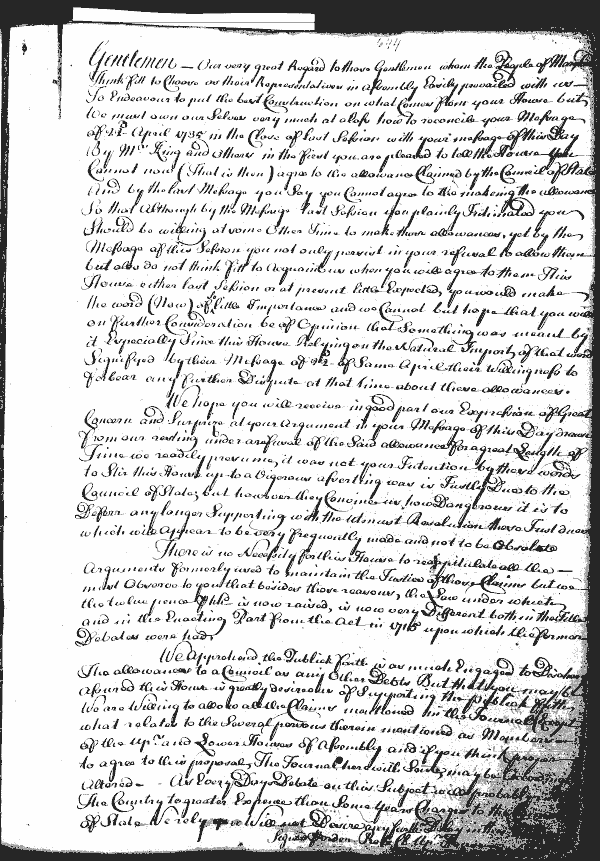 644
Gentlemen — Our very great Regard to those Gentlemen whom the People of
think fitt to Choose as their Representatives in Assembly Easily prevailed with us —
To Endeavour to put the best Construction on what Comes from your House but
We must own our Selves very much at a loss how to reconcile your Message
of April 1735 in the Close of last Session with your message of this Day
By Mr. King and Others in the first you are pleased to tell the House you
Cannot now (that is then) agree to the allowance Claimed by the Council of State
And by the last Message you Say you Cannot agree to the making the allowance
So that Although by the Message last Session you plainly Intimated you
Should be willing at some Other Time to make those allowances, yet by the
Message of this Session you not only persist in your refusal to allow them
but also do not think fitt to Acquaint us when you will agree to them This
House either last Session or at present little Expected, you would make
the word (Now) of little Importance and we Cannot but hope that you will
on further Consideration be of Opinion that Something was meant by
it Especially Since this House Relying on the Natural Import of that word
Signifyed by their Message of of Same April their willingness to
forbear any further Dispute at that time about these allowances.
We hope you will receive in good part our Expression of Great
Concern and Surprize at your Argument in your Message of this Day drawn
from our resting under a refusal of the Said allowance for a great Length of
Time we readily presume, it was not your Intention by these words
to Stir this House up to a Vigorous asserting was is Justly Due to the
Council of State, but however they Convince us how Dangerous it is to
Deferr any longer Supporting with the Utmost Resolution those Just dues
which will Appear to be very frequently made and not to be Obsolete
There is no Necessity for this House to recapitulate all the —
Arguments formerly used to maintain the Justice of those Claims but we
must Observe to you that besides those reasons, the Law under which
the twelve pence is now raised, is now very Different both in the Title
and in the Enacting Part from the Act in 1715 upon which the former
Debates were had,
We Apprehend the Publick faith is as much Engaged to Discharge
the allowances to a Council as any Other Debts But that you may be
assured this House is greatly desireous of Supporting the publick faith
we are Willing to allow all the Claims mentioned in the Journal Except
what relates to the Several persons therein mentioned as Members
of the upr. and Lower Houses of Assembly and if you think proper
to agree to this proposal, The Journal herewith Sent may be
Altered — As Every Days Debate on this Subject will probably
The Country to greater Expence than Some years Charges to the
of State We rely you Will not Desire any further Delay in
Signed